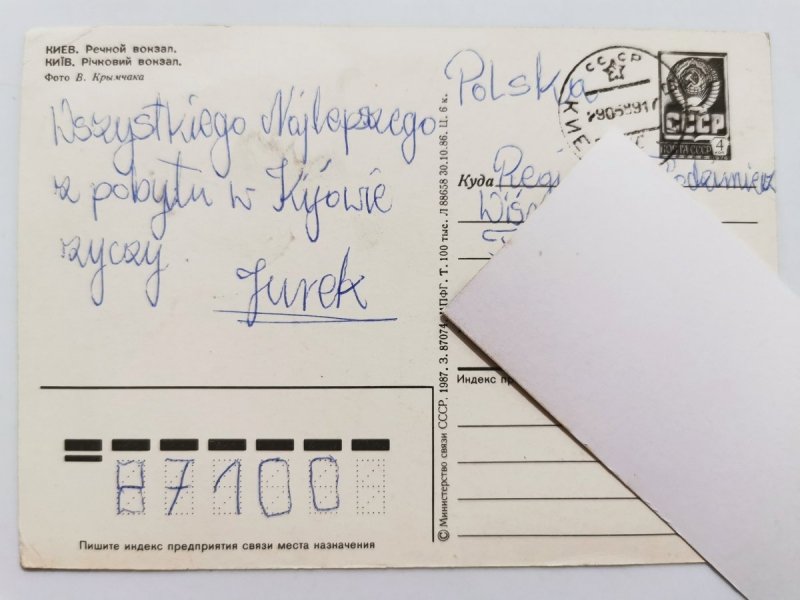 КИЕВ. Речной вокзал.
КИЇВ. Річковий вокзал.
Фото В. Крымчака
Wszystkiego Najlepszego
z pobytu w Kijowie
życzy.
Jurek
87100
Пишите индекс предприятия связи места назначения
© Министерство связи СССР, 1987. З. 87074. МПФГ. Т. 100 тыс. Л 88658 30.10.86. Ц. 6 к.
Polska
СССР
КИЕВ
СССР
ПОЧТА СССР
4
Куда
Индекс